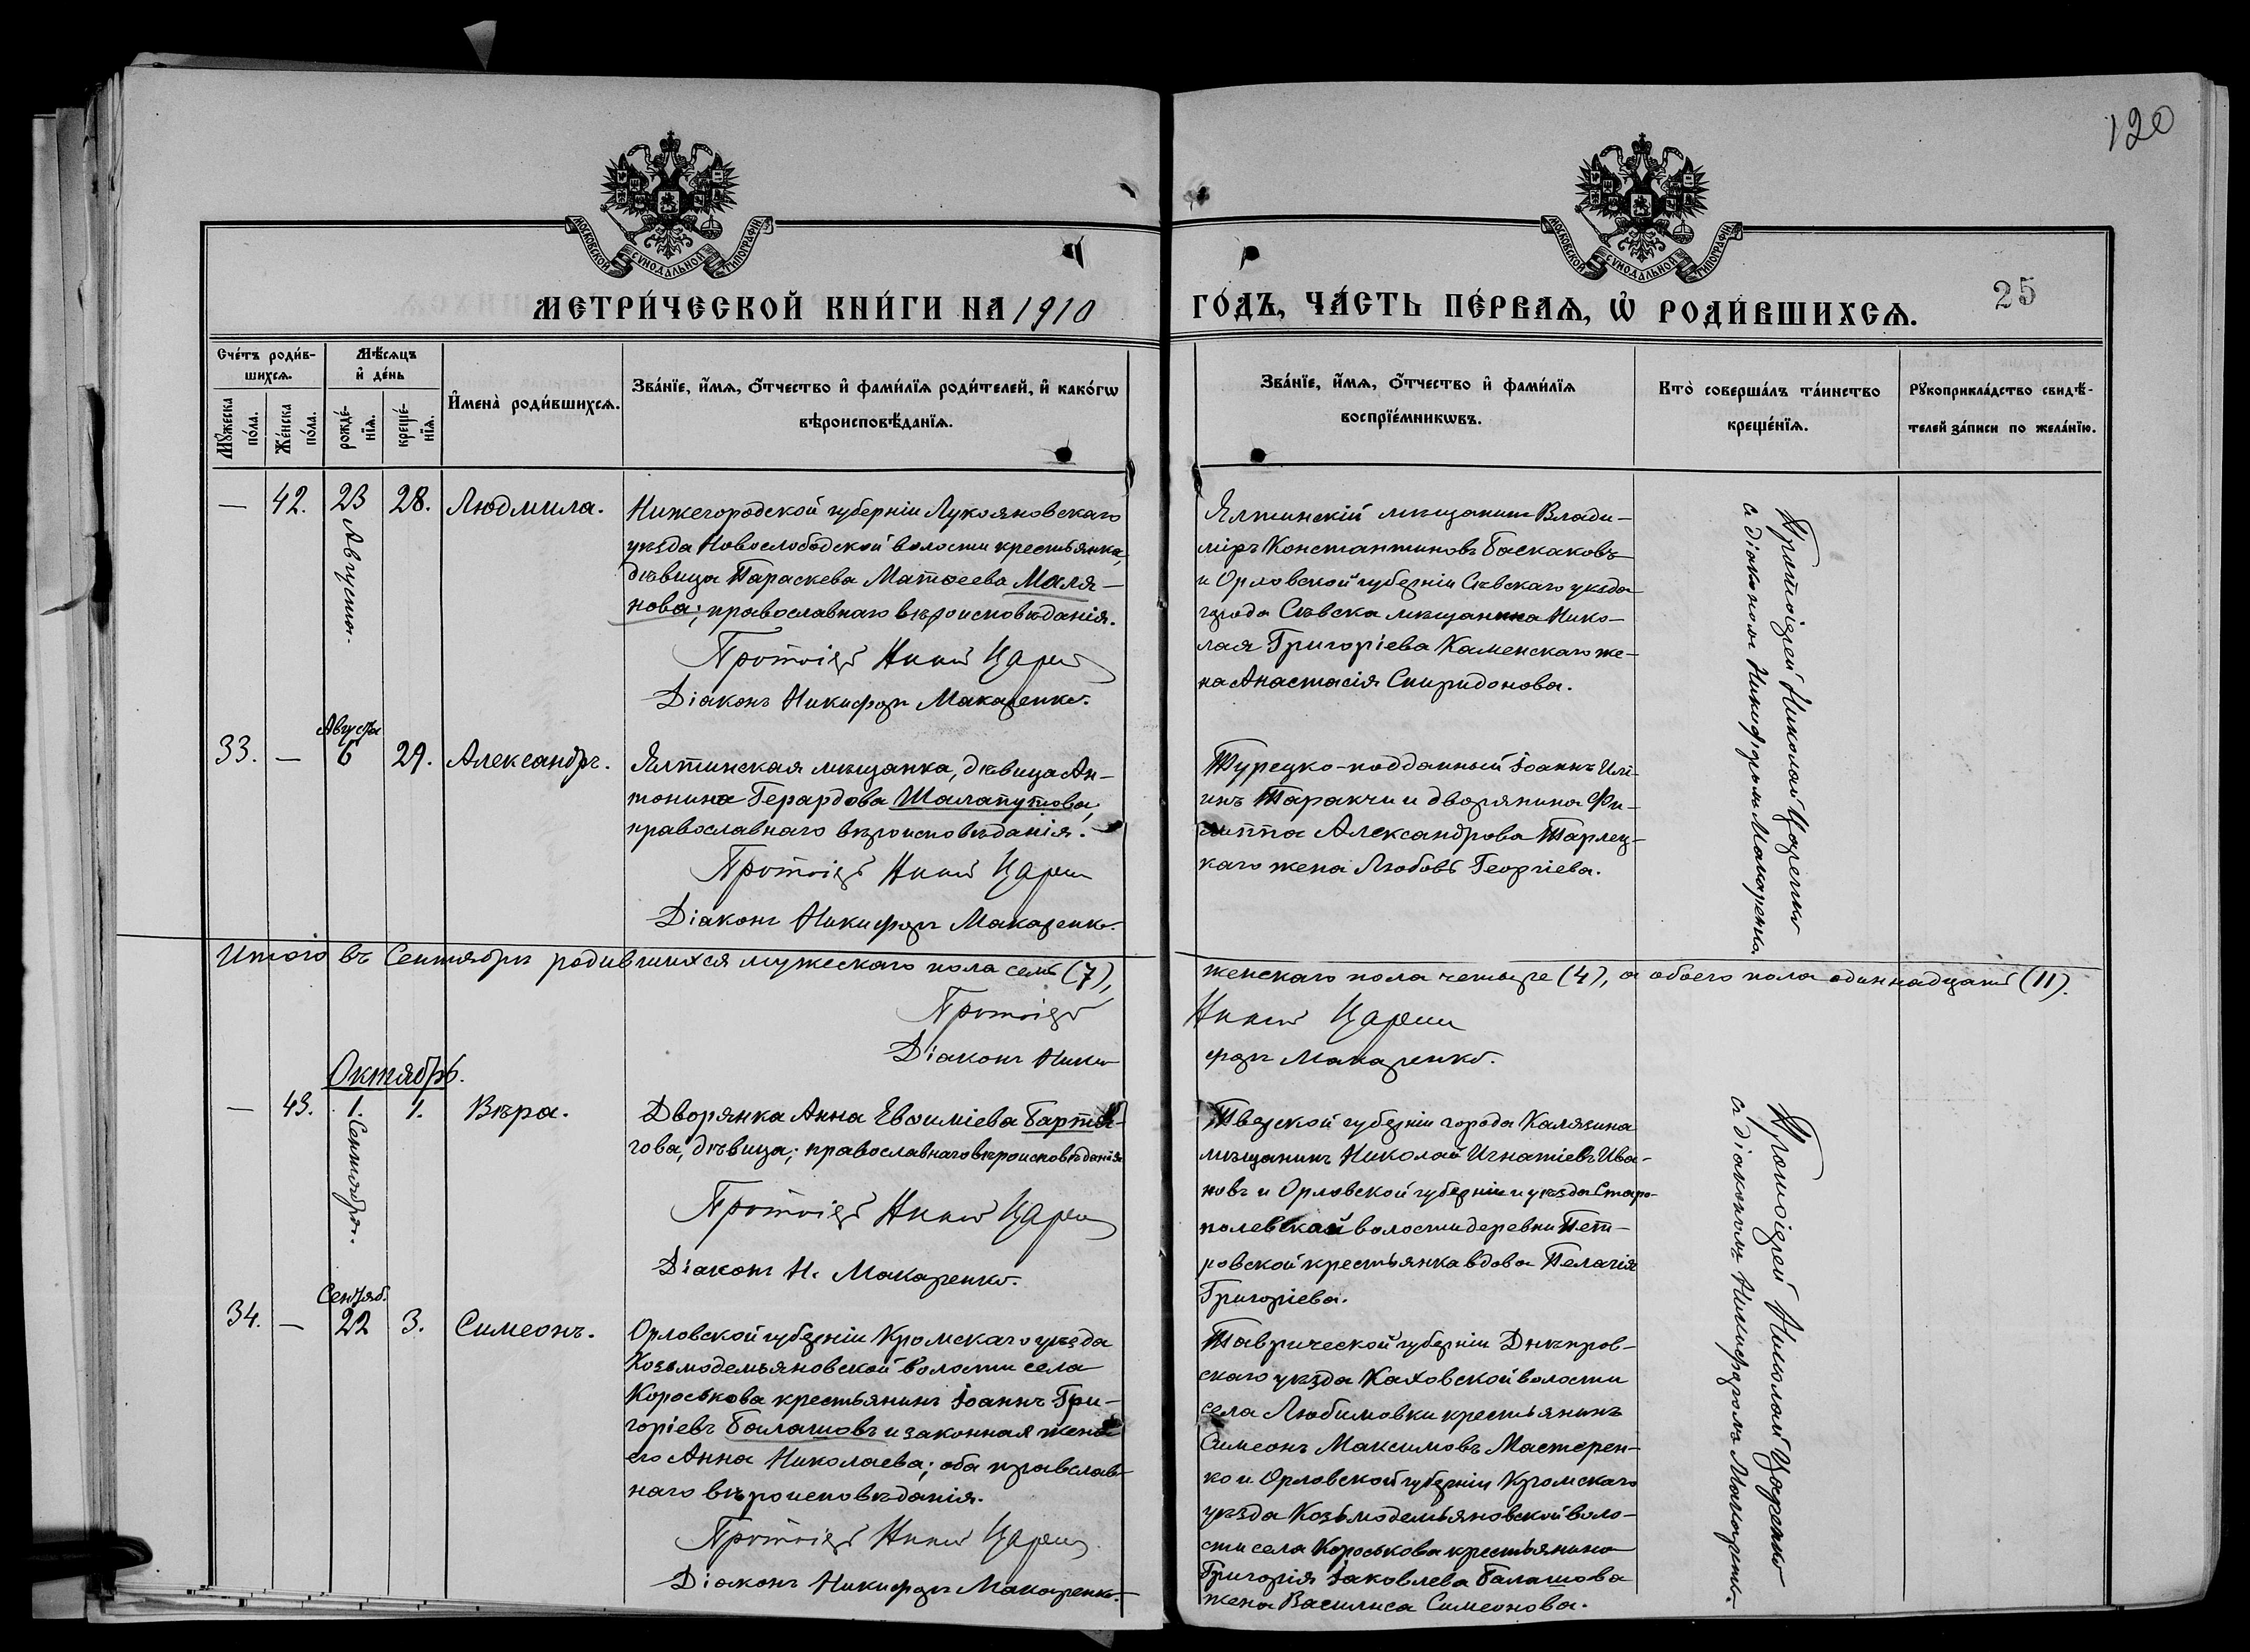 120
МОСКОВСКОЙ СУНОДАЛЬНОЙ ТИПОГРАФІИ
МОСКОВСКОЙ СУНОДАЛЬНОЙ ТИПОГРАФІИ
МЕТРИ́ЧЕСКОЙ КНИ́ГИ НА 1910
ГО́ДЪ, ЧА́СТЬ ПЕ́РВАѦ, Ѡ҆ РОДИ́ВШИХСѦ.
25
Сче́тъ роди́в-
шихсѧ.
Мꙋ́жеска
по́ла.
Же́нска
по́ла.
Мѣ́сѧцъ
и҆ де́нь
рожде́-
нїѧ.
креще́-
нїѧ.
И҆мена̀ роди́вшихсѧ.
Зва́нїе, и҆́мѧ, ѻ҆́тчество и҆ фами́лїѧ роди́телей, и҆ како́гѡ
вѣроисповѣ́данїѧ.
Зва́нїе, и҆́мѧ, ѻ҆́тчество и҆ фами́лїѧ
воспрїе́мникѡвъ.
Кто̀ соверша́лъ та́инство
креще́нїѧ.
Рꙋкоприкла́дство свидѣ́-
телей за́писи по жела́нїю.
— 42. 23 28. Людмила.
Августа.
Нижегородской губерніи Лукояновскаго
уѣзда Новослободской волости крестьянка,
дѣвица Параскева Матѳеева Маля-
нова; православнаго вѣроисповѣданія.
Протоіер
Діаконъ Никифоръ Макаренко.
Ялтинскій мѣщанинъ Влади-
міръ Константиновъ Баскаковъ
и Орловской губерніи Сѣвскаго уѣзда
города Сѣвска мѣщанина Нико-
лая Григоріева Каменскаго же-
на Анастасія Спиридонова.
Протоіерей Николай Царенко
съ діакономъ Никифоромъ Макаренко.
Августа
33. — 6 29. Александръ.
Ялтинская мѣщанка, дѣвица Ан-
тонина Герардова Шалапутова,
православнаго вѣроисповѣданія.
Протоіер
Діаконъ Никифоръ Макаренко.
Турецко-подданный Іоаннъ Илі-
инъ Таракчи и дворянина Фи-
липпа Александрова Тарлец-
каго жена Любовь Георгіева.
Итого въ Сентябрѣ родившихся мужескаго пола семь (7),
женскаго пола четыре (4), а обоего пола одиннадцать (11).
Протоіер
Діаконъ Ники-
форъ Макаренко.
Октябрь.
— 43. 1. 1. Вѣра.
Сентября.
Дворянка Анна Евѳиміева Бартен-
гова, дѣвица; православнаго вѣроисповѣданія
Протоіер
Діаконъ Н. Макаренко.
Тверской губерніи города Калязина
мѣщанинъ Николай Игнатіевъ Ива-
новъ и Орловской губерніи и уѣзда Старо-
полевской волости деревни Пет-
ровской крестьянка вдова Пелагія
Григоріева.
Протоіерей Николай Царенко
съ діакономъ Никифоромъ Макаренко.
Сентяб.
34. — 22 3. Симеонъ.
Орловской губерніи Кромскаго уѣзда
Козьмодемьяновской волости села
Короськова крестьянинъ Іоаннъ Гри-
горіевъ Балашовъ и законная жена
его Анна Николаева; оба православ-
наго вѣроисповѣданія.
Протоіер
Діаконъ Никифоръ Макаренко.
Таврической губерніи Днѣпров-
скаго уѣзда Каховской волости
села Любимовки крестьянинъ
Симеонъ Максимовъ Мастерен-
ко и Орловской губерніи Кромскаго
уѣзда Козьмодемьяновской воло-
сти села Короськова крестьянина
Григорія Іаковлева Балашова
жена Василиса Симеонова.